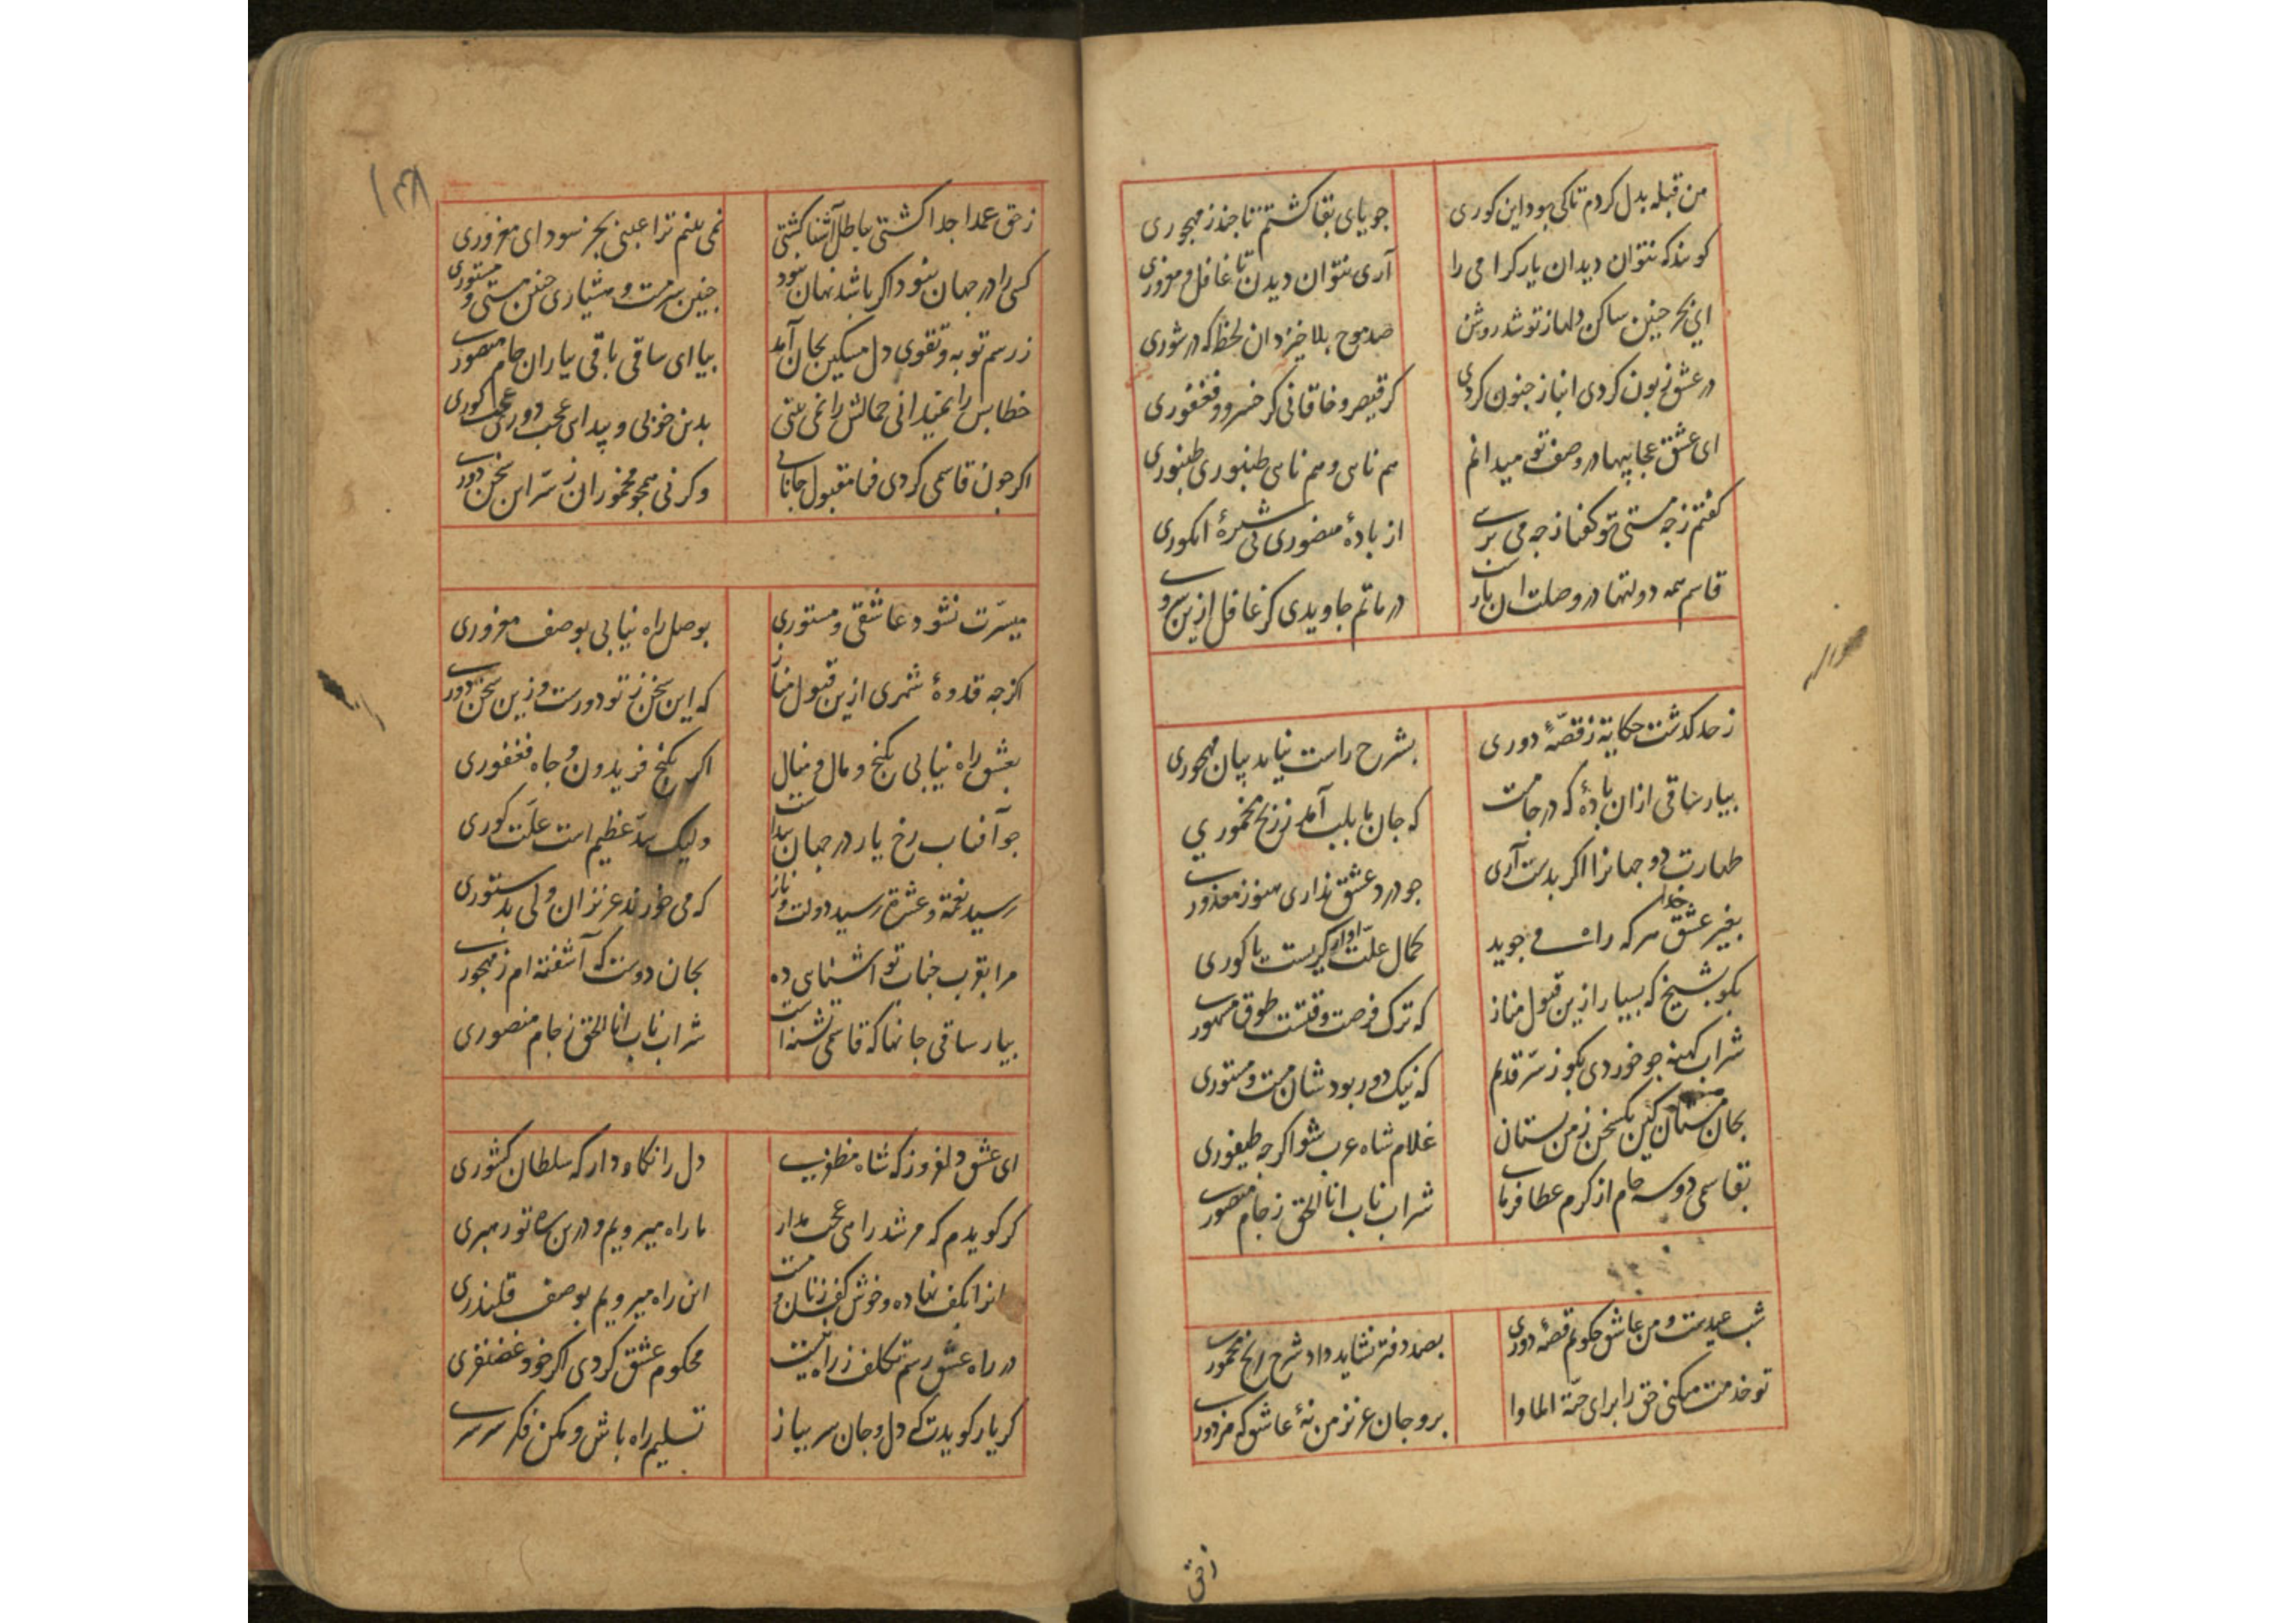 من قبله بدل کردم تا کی بود این کوری جویای بقا کشتم تا چند ز مهجوری
کویند که نتوان دیدان یار کرامی را آری نتوان دیدن تا غافل و مغروری
ای بحر چنین ساکن دلها ز تو شد روشن صد موج بلا خیزد ان لحظه که در شوری
در عشق زبون کردی انباز جنون کردی کر قیصر و خاقانی کر خسرو و فغفوری
ای عشق عجایبها در وصف تو میدانم هم نایی و هم نایی طنبوری طنبوری
کفتم ز چه مستی تو کفتا ز چه می پرسی از بادهٔ منصوری نی شیرهٔ انکوری
قاسم همه دولتها در وصلت ان یارست در ماتم جاویدی کر غافل ازین سوری
ز حد کذشت حکایه ز قصّهٔ دوری بشرح راست نیاید بیان مهجوری
بیار ساقی ازان بادهٔ که در جامست که جان ما بلب آمد ز رنج مخموری
طهارت دو جهانرا اکر بدست آری چو درد عشق نداری هنوز معذوری
بغیر عشق خدا هر که راه می جوید کمال علّت او از کریست یا کوری
بکو بشیخ که بسیار ازین قبول مناز که ترک فرصت وقتست طوق مشهوری
شراب کهنه چو خوردی بکو ز سرّ قدیم که نیک دور بود شان مست و مستوری
بجان مستان کین یکسخن ز من بستان غلام شاه عرب شو اکرچه طیفوری
بقاسمی دو سه جام از کرم عطا فرمای شراب ناب انا الحق ز جام منصوری
شب عیدست و من عاشق چکویم قصّهٔ دوری بصد دفتر نشاید داد شرح رنج مخموری
تو خدمت میکنی حق را برای جنّة الماوا برو جان عزیز من نهٔ عاشق که مزدوری
زحق
۱۳۸
زحق عمدا جدا کشتی بباطل آشنا کشتی نمی بینم ترا عیبی بجز سودای مغروری
کسی را در جهان نبود اکر باشد نهان نبود چنین سرمست و هشیاری چنین مستی و مستوری
ز رسم توبه و تقوی دل مسکین بجان آمد بیا ای ساقی باقی بیاران جام منصوری
خطابش را نمیدانی جمالش را نمی بینی بدین خوبی و پیدایی عجب دوری عجب کوری
اکر چون قاسمی کردی فنا مقبول جانانی و کرنی همچو مخموران ز سرّ این سخن دوری
میسّرت نشود عاشقی و مستوری بوصل راه نیابی بوصف مغروری
اکرچه قدوهٔ شهری ازین قبول مناز که این سخن ز تو دورست و زین سخن دوری
بعشق راه نیابی بکنج و مال و منال اکر بکنج فریدون و جاه فغفوری
چو آفتاب رخ یار در جهان پیداست ولیک سدّ عظیم است علّت کوری
رسید نغمه و عشرة رسید دولت و ناز که می خورند عزیزان ولی بدستوری
مرا بقرب جناب تو اشنایی ده بجان دوست که آشفته ام ز مهجوری
بیار ساقی جانها که قاسمی تشنه است شراب ناب انا الحق ز جام منصوری
ای عشق دلفروز که شاه مظفری دل را نکاه دار که سلطان کشوری
کر کویدم که مرشد راهی عجب مدار ما راه میرویم و درین ره تو رهبری
این راه میرویم بوصف قلندری
در راه عشق رستم تکلف ز راه نیست محکوم عشق کردی اکر خود غضنفری
کر یار کویدت که دل و جان سر بباز تسلیم راه باش و مکن فکر سرسری